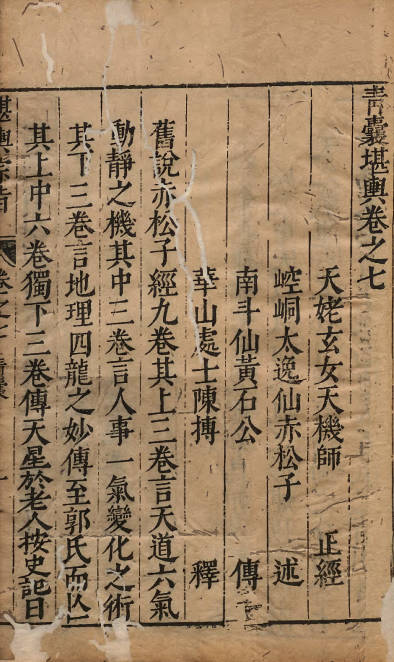 青囊堪輿卷之七
天姥玄女天機師 正經
崆峒太逸仙赤松子 述
南斗仙黃石公 傳
華山處士陳摶 釋
舊說赤松子經九卷其上三卷言天道六氣
動靜之機其中三卷言人事一氣變化之術
其下三卷言地理四龍之妙傳至郭氏而
其上中六卷獨下三卷傳天星於老人按史記曰
堪輿宗旨 卷之七 青囊 一